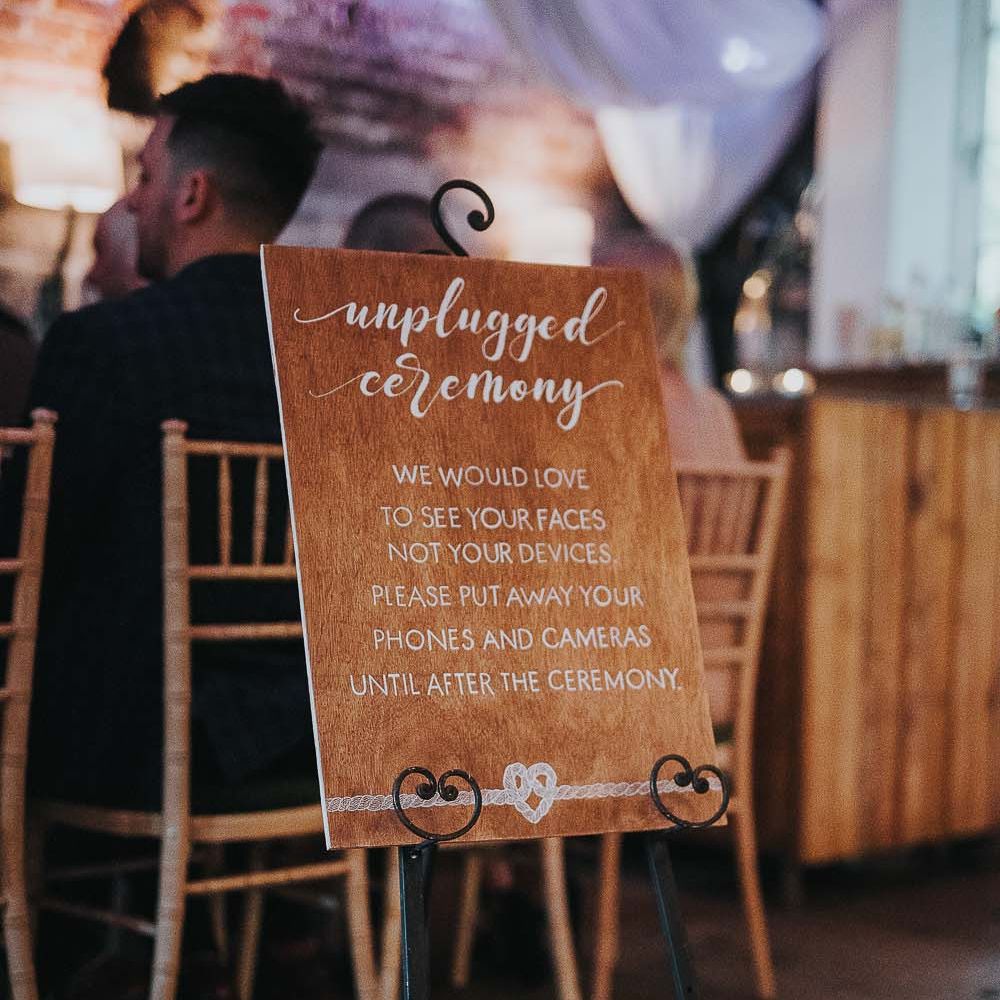 unplugged
ceremony
WE WOULD LOVE
TO SEE YOUR FACES
NOT YOUR DEVICES.
PLEASE PUT AWAY YOUR
PHONES AND CAMERAS
UNTIL AFTER THE CEREMONY.